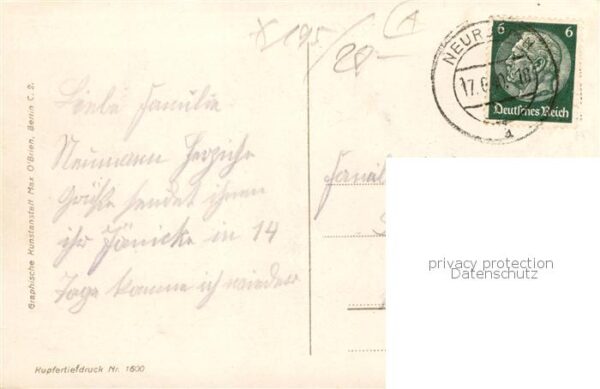 6 6
Deutsches Reich
NEUR
17.6
a
A
X195/
20-
Liebe Familie
Neumann Herzliche
Grüße sendet ihnen
ihr Jänicke in 14
Tage komme ich wieder
Famil
privacy protection
Datenschutz
Graphische Kunstanstalt Max O'Brien, Berlin C. 2.
Kupfertiefdruck Nr. 1600